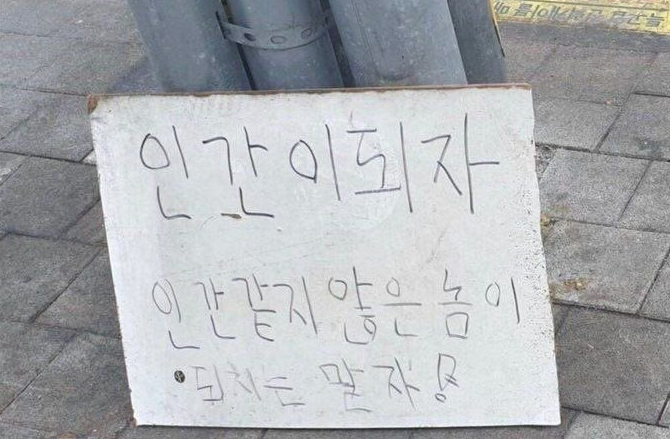 인간이되자
인간같지 않은놈이
되지는 말자